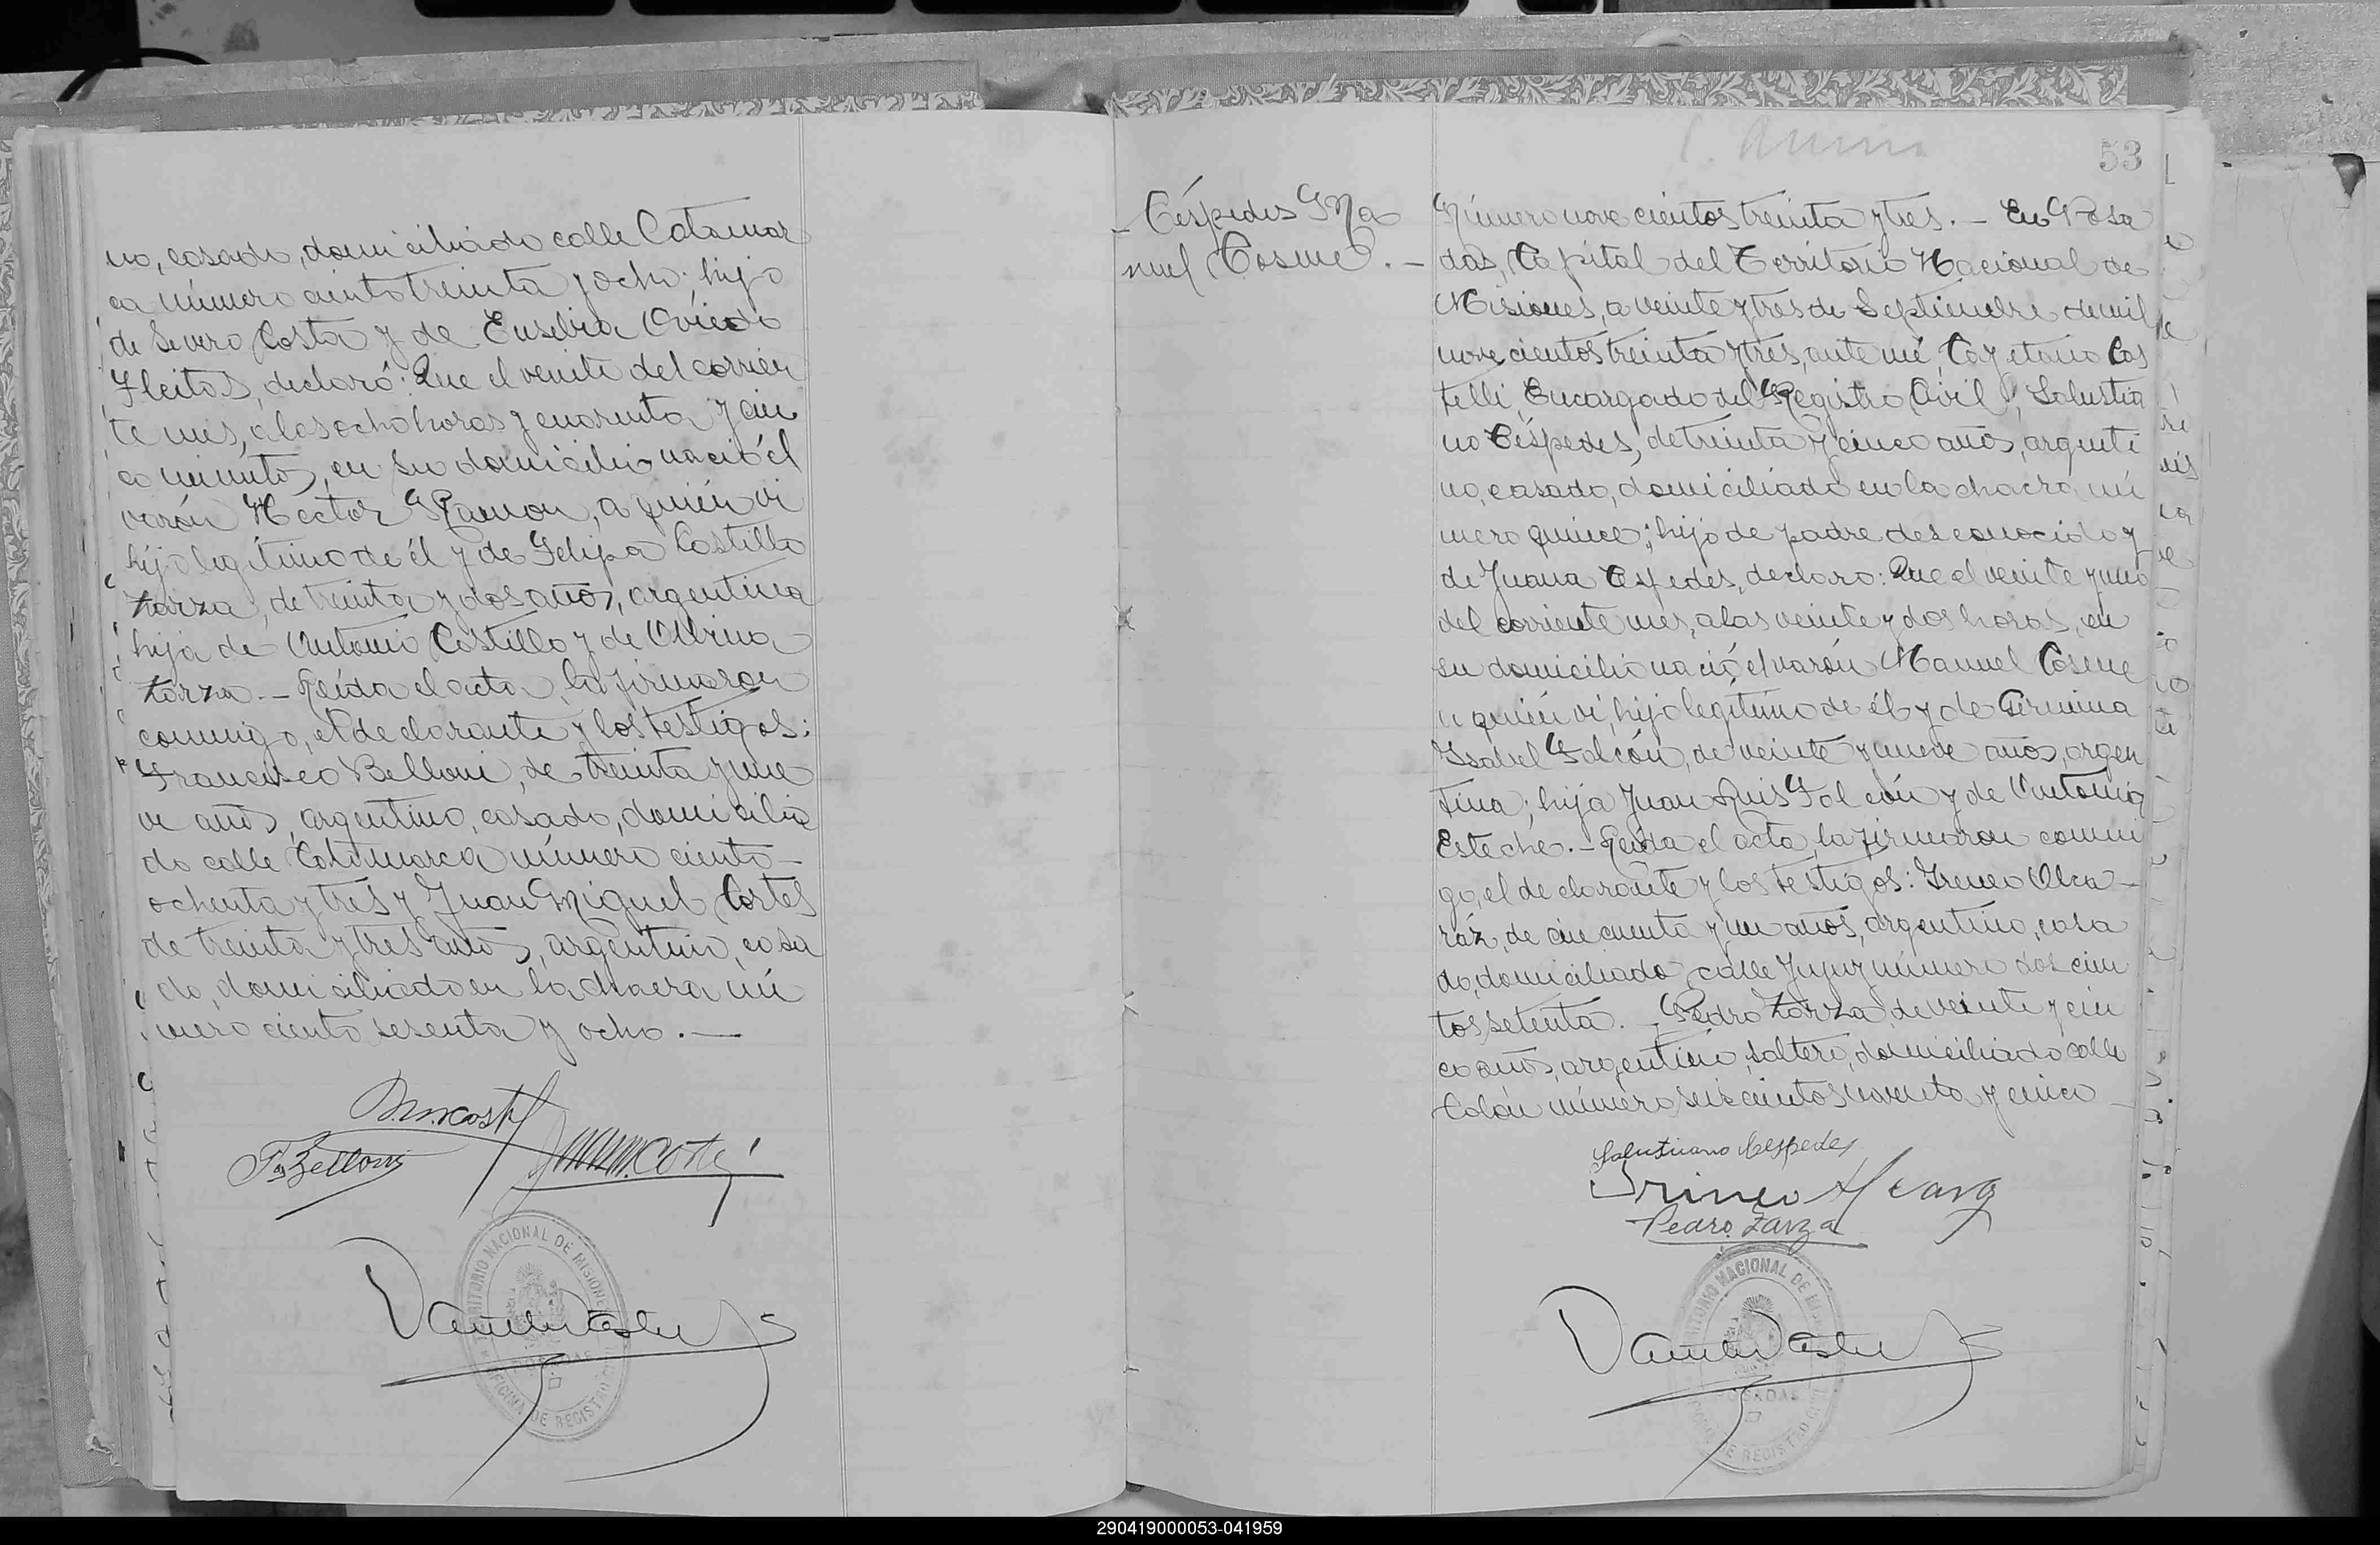 no, casado, domiciliado calle Catamar
ca número ciento treinta y ocho; hijo
de Severo Costa y de Eusebia Oviedo
Fleitas, declaró: Que el veinte del corrien
te mes, a las ocho horas y cuarenta y cin
co minutos, en su domicilio nació el
varón Hector Ramon, a quién vi
hijo legítimo de él y de Felipa Castillo
Zarza, de treinta y dos años, argentina
hija de Antonio Castillo y de
Zarza.- Leída el acta, la firmaron
conmigo, el declarante y los testigos:
Francisco Belloni, de treinta y nue
ve años, argentino, casado, domicilia
do calle Catamarca número ciento-
ochenta y tres y Juan Miguel Cortes
de treinta y tres años, argentino, casa
do, domiciliado en la chacra nú
mero ciento sesenta y ocho.-
TERRITORIO NACIONAL DE MISIONES
POSADAS
OFICINA DE REGISTRO CIVIL
53
- Céspedes Ma
nuel Cosme.-
Número novecientos treinta y tres.- En Posa
das, Capital del Territorio Nacional de
Misiones, a veinte y tres de Septiembre de mil
novecientos treinta y tres, ante mí, Cayetano Cas
telli, Encargado del Registro Civil, Salustia
no Céspedes, de treinta y cinco años, argenti
no, casado, domiciliado en la chacra nú
mero quince; hijo de padre desconocido y
de Juana Cespedes, declaro: Que el veinte y uno
del corriente mes, a las veinte y dos horas, en
su domicilio nació el varón Manuel Cosme
a quién vi, hijo legítimo de él y de Girmina
Isabel Falcón, de veinte y nueve años, argen
tina; hija Juan Luis Falcón y de Antonia
Esteche.- Leída el acta, la firmaron conmi
go, el declarante y los testigos: Ireneo Alca-
ráz, de cincuenta y un años, argentino, casa
do, domiciliado calle Jujuy número doscien
tos setenta.- Pedro Zarza, de veinte y cin
co años, argentino, soltero, domiciliado calle
Colón número seiscientos noventa y cinco-
Salustiano Cespedes
Irineo Alcaraz
Pedro Zarza
TERRITORIO NACIONAL DE MISIONES
POSADAS
OFICINA DE REGISTRO CIVIL
290419000053-041959